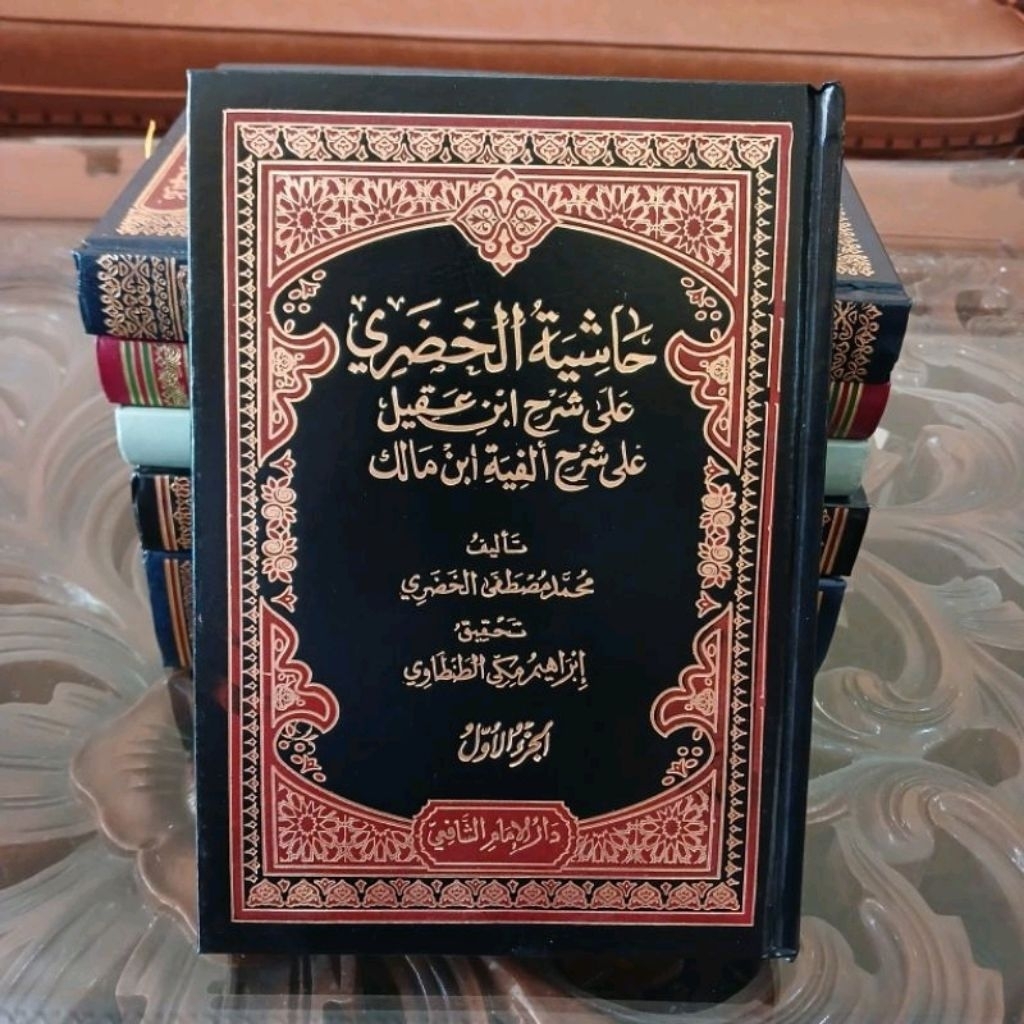 حَاشِيَةُ الخَضَرِي
عَلَى شَرْحِ ابْنِ عَقِيل
عَلى شَرْحِ ألفِيَة ابْن مَالك
تَأليفُ
مُحَمَّد مُصْطَفَى الخَضَرِي
تَحْقِيقُ
إِبْرَاهِيم مَكِّي الطَنطَاوِي
الجُزْءُ الأَوَّلُ
دَارُ الإِمَامِ الشَّافِعِي